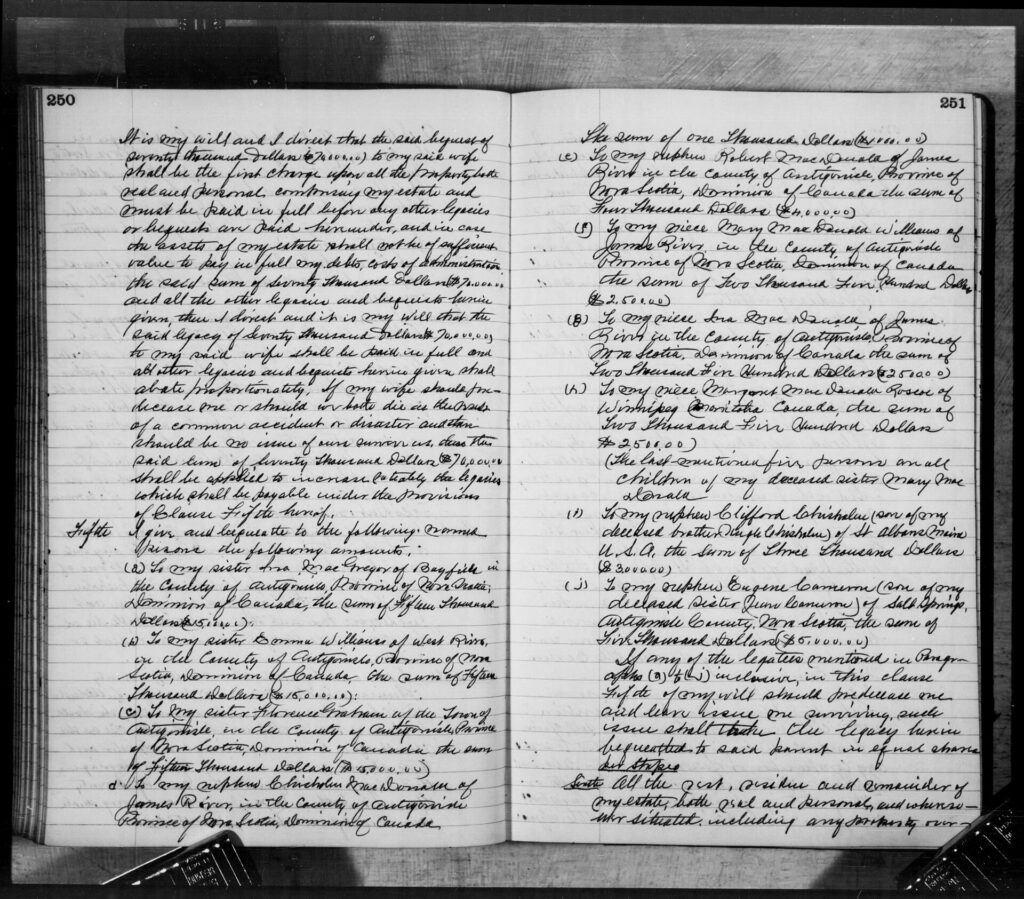 250
It is my will and I direct that the said bequest of
seventy thousand Dollars ($70,000.00) to my said wife
shall be the first charge upon all the property, both
real and personal, comprising my estate and
must be paid in full before any other legacies
or bequests are paid hereunder, and in case
the assets of my estate shall not be of sufficient
value to pay in full my debts, costs of administration
the said sum of Seventy Thousand Dollars ($70,000.00
and all the other legacies and bequests herein
given, then I direct and it is my will that the
said legacy of Seventy Thousand Dollars ($70,000.00)
to my said wife shall be paid in full and
all other legacies and bequests herein given shall
abate proportionately. If my wife should pre-
decease me or should we both die as the result
of a common accident or disaster and there
should be no issue of ours surviving us, then the
said sum of Seventy Thousand Dollars ($70,000.00
shall be applied to increase rateably the legacies
which shall be payable under the provisions
of Clause Fifth hereof.
Fifth I give and bequeath to the following named
persons the following amounts:
(a) To my sister Ina MacGregor of Bayfield in
the County of Antigonish, Province of Nova Scotia,
Dominion of Canada, the sum of Fifteen Thousand
Dollars ($15,000.00):
(b) To my sister Emma Williams of West River,
in the County of Antigonish, Province of Nova
Scotia, Dominion of Canada the sum of Fifteen
Thousand Dollars ($15,000.00):
(c) To my sister Florence Graham of the Town of
Antigonish, in the County of Antigonish, Province
of Nova Scotia, Dominion of Canada the sum
of Fifteen Thousand Dollars ($15,000.00)
d To my nephew Chisholm MacDonald of
James River, in the County of Antigonish
Province of Nova Scotia, Dominion of Canada
251
The sum of one Thousand Dollars ($1,000.00)
(e) To my nephew Robert MacDonald of James
River in the County of Antigonish, Province of
Nova Scotia, Dominion of Canada the sum of
Four Thousand Dollars ($4,000.00)
(f) To my niece Mary MacDonald Williams of
James River, in the County of Antigonish
Province of Nova Scotia, Dominion of Canada
the sum of Two Thousand Five Hundred Dollars
$2,500.00)
(g) To my niece Ina MacDonald, of James
River in the County of Antigonish, Province of
Nova Scotia, Dominion of Canada the sum of
Two Thousand Five Hundred Dollars ($2500.00)
(h) To my niece Margaret MacDonald Roscoe of
Winnipeg Manitoba Canada, the sum of
Two Thousand Five Hundred Dollars
$2500.00)
(The last-mentioned five persons are all
children of my deceased sister Mary Mac
Donald
(i) To my nephew Clifford Chisholm (son of my
deceased brother Hugh Chisholm) of St Albans Maine
U.S.A. the sum of Three Thousand Dollars
$3,000.00)
(j) To my nephew Eugene Cameron (son of my
deceased sister Jean Cameron) of Salt Springs,
Antigonish County, Nova Scotia, the sum of
Five Thousand Dollars ($5,000.00)
If any of the legatees mentioned in Paragra-
aphs (a) to (j) inclusive, in this clause
Fifth of my will should predecease me
and leave issue me surviving, such
issue shall take the legacy herein
bequeathed to said parent in equal shares
per stirpes
Sixth All the rest, residue and remainder of
my estate, both real and personal, and whenso-
ever situated, including any property over-